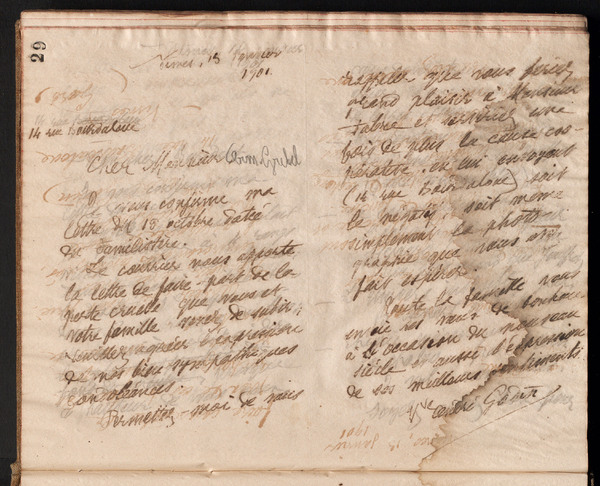 29
Nîmes, 15 Janvier
1901
14 rue Bourdaloue
Cher Monsieur
Je vous confirme ma
lettre du 13 octobre datée
du Familistère.
Le courrier nous apporte
la lettre de faire-part de la
perte cruelle que vous et
votre famille venez de subir;
veuillez agréer l'expression
de nos bien sympathiques
condoléances.
Permettez-moi de vous
rappeler que vous feriez
grand plaisir à Monsieur
Fabre et serviriez une
fois de plus la cause coo-
pérative, en lui envoyant
(14 rue Bourdaloue) soit
le négatif, soit
simplement la photo-
graphie que vous
fait espérer.
Toute la famille vous
envoie ses vœux de bonheur
à l'occasion du nouveau
siècle et aussi l'expression
de ses meilleurs sentiments.
Vve Godin